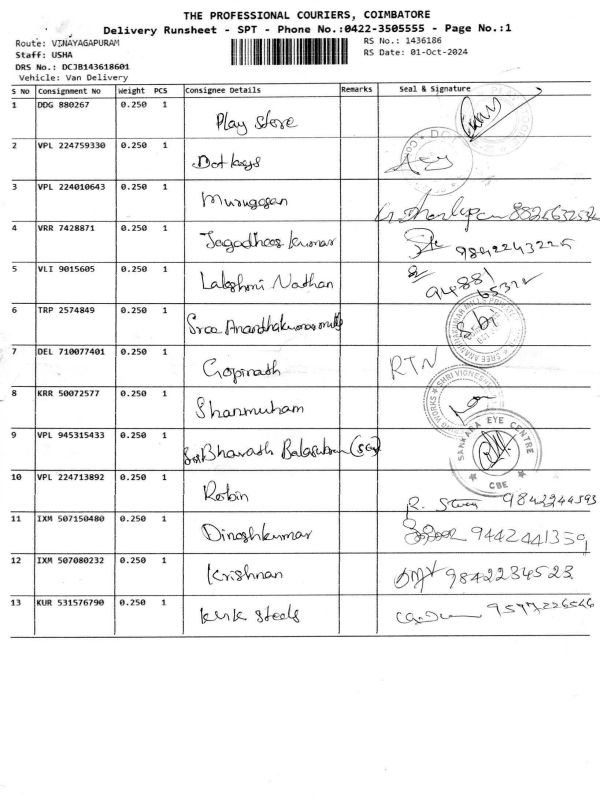 THE PROFESSIONAL COURIERS, COIMBATORE
Delivery Runsheet - SPT - Phone No.:0422-3505555 - Page No.:1
Route: VINAYAGAPURAM RS No.: 1436186
Staff: USHA RS Date: 01-Oct-2024
DRS No.: DCJB143618601
Vehicle: Van Delivery
S No Consignment No Weight PCS Consignee Details Remarks Seal & Signature
1 DDG 880267 0.250 1 Play Store
2 VPL 224759330 0.250 1 Dot keys
3 VPL 224010643 0.250 1 Murugesan
4 VRR 7428871 0.250 1 Jagadhees kumar 9842243225
5 VLI 9015605 0.250 1 Lakshmi Nathan 94881
65322
6 TRP 2574849 0.250 1 Sree Anandhakumar mills
7 DEL 710077401 0.250 1 Gopinath RTN
8 KRR 50072577 0.250 1 Shanmuham
9 VPL 945315433 0.250 1 Bharath SANKARA EYE CENTRE CBE
10 VPL 224713892 0.250 1 Robin R. 9842244593
11 IXM 507150480 0.250 1 Dineshkumar 9442441359
12 IXM 507080232 0.250 1 Krishnan 9842234523
13 KUR 531576790 0.250 1 KMK Steels